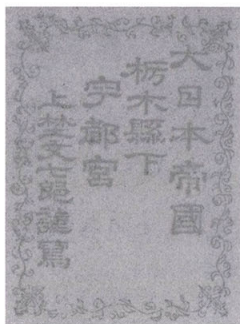 大日本帝國
栃木縣下
宇都宮
上埜文七郎謹寫